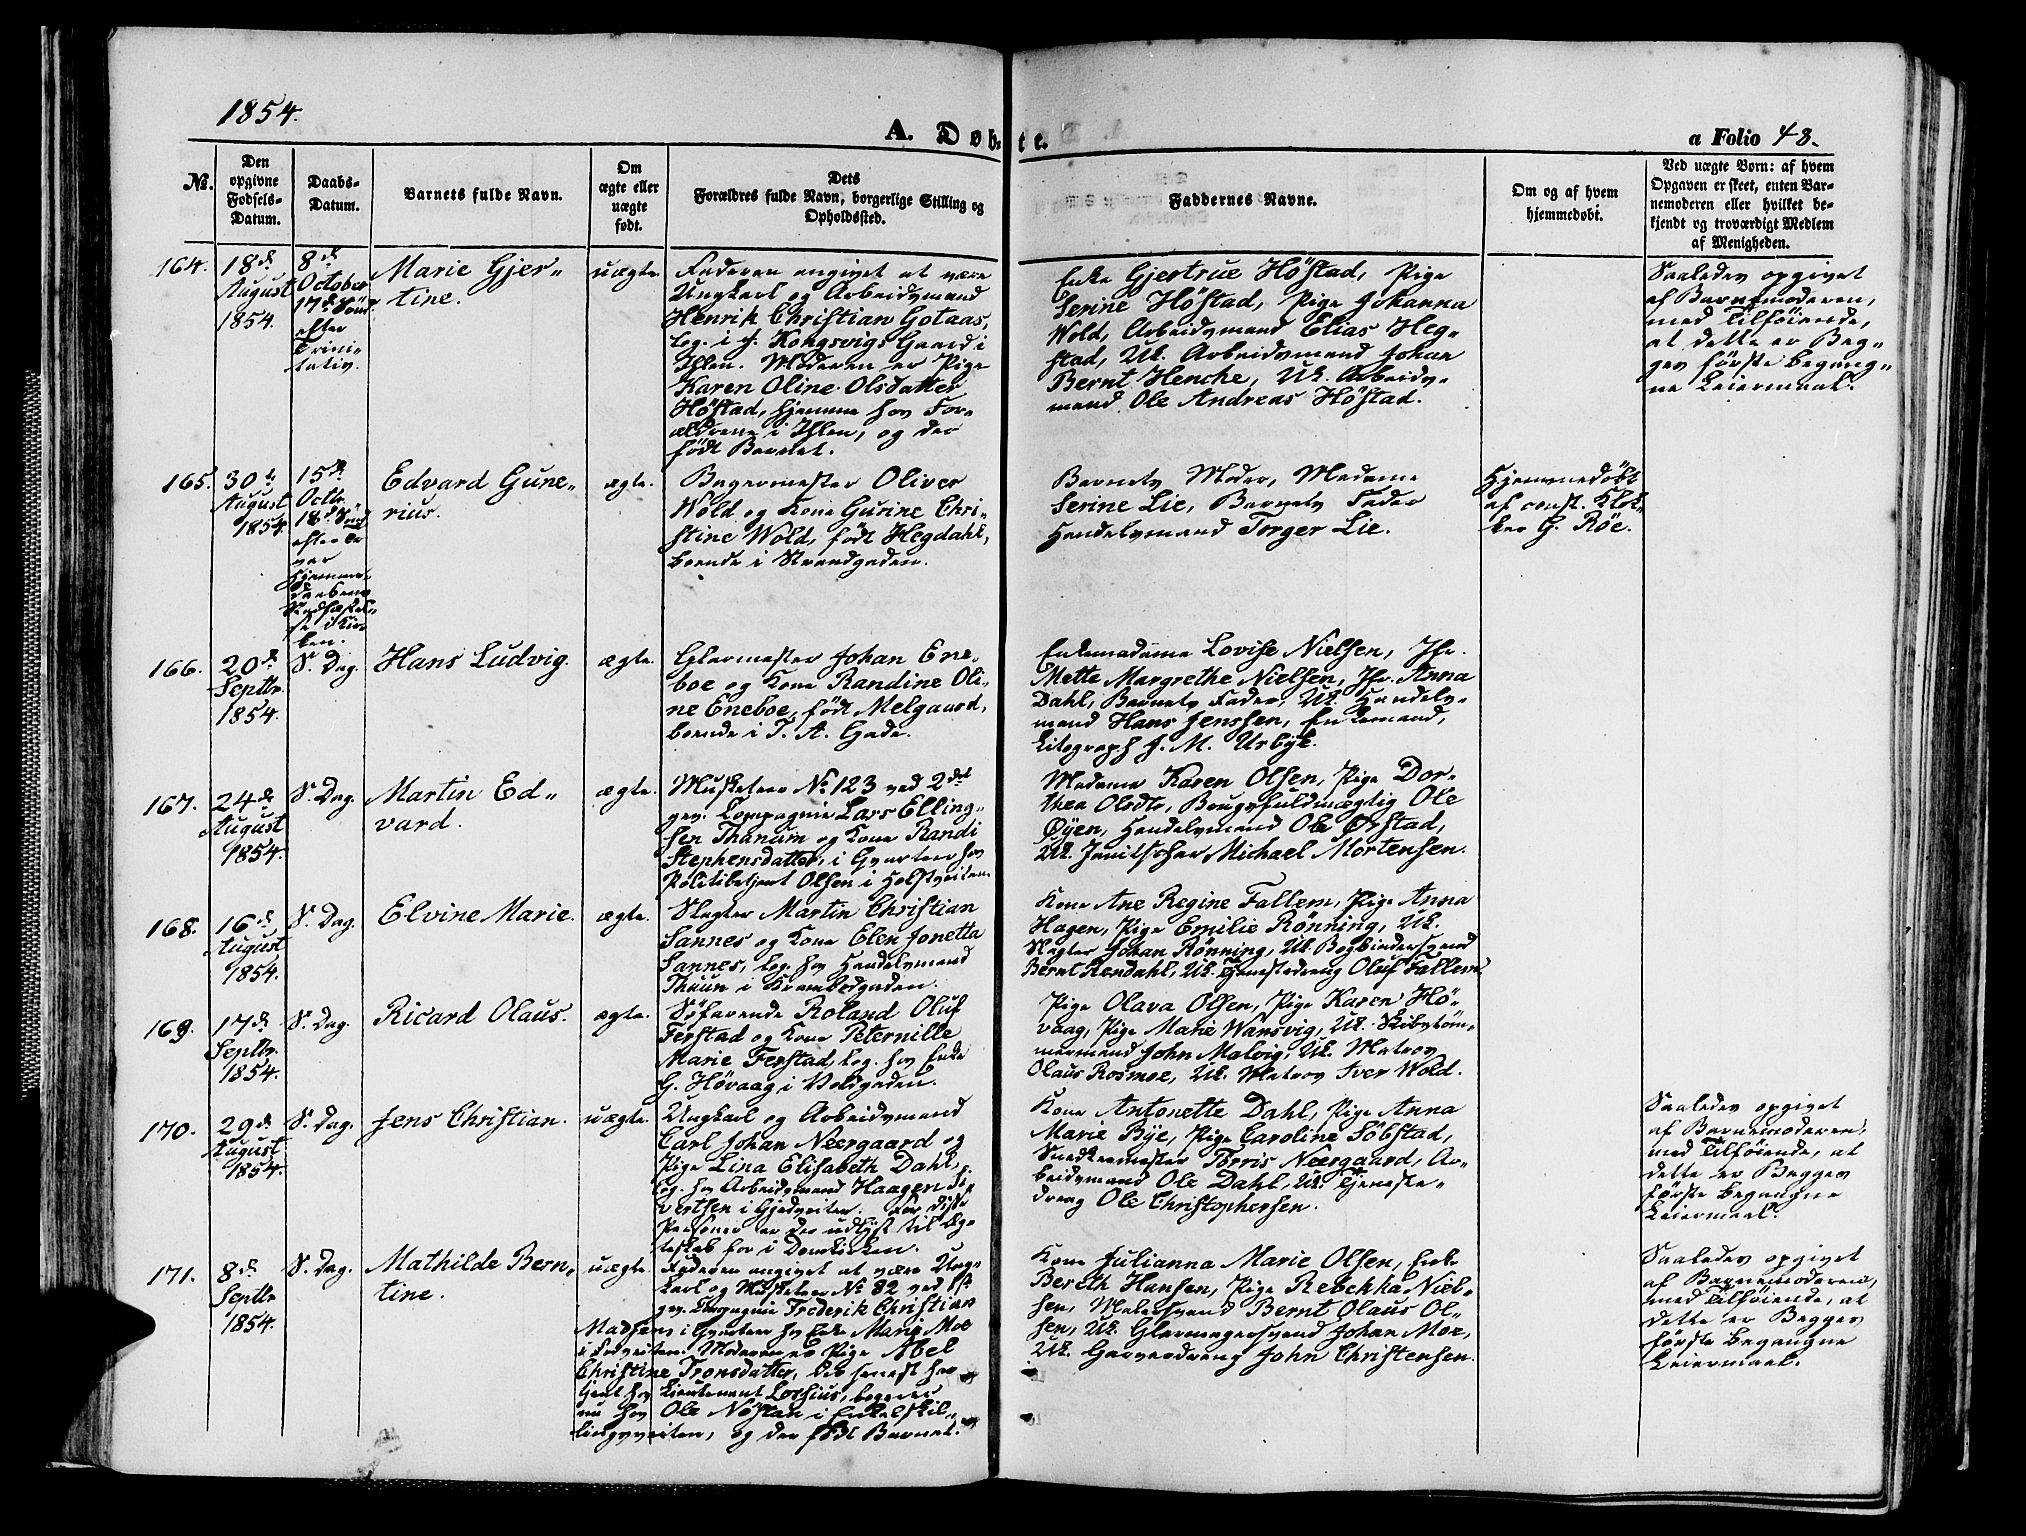 1854.
A. Døb-
te.
a Folio 48.
No.
Den
opgivne
Fødsels-
Datum.
Daabs-
Datum.
Barnets fulde Navn.
Om
ægte eller
uægte
født.
Dets
Forældres fulde Navn, borgerlige Stilling og
Opholdssted.
Faddernes Navne.
Om og af hvem
hjemmedøbt.
Ved uægte Børn: af hvem
Opgaven er skeet, enten Bar-
nemoderen eller hvilket be-
kjendt og troværdigt Medlem
af Menigheden.
164.
18de
August
1854.
8de
October
17de Sønd.
efter
Trini-
tatis.
Marie Gjer-
tine.
uægte.
Faderen angivet at være
Ungkarl og Arbeidsmand
Henrik Christian Gotaas,
log. i J. Kongsvigs Gaard i
Ihlen. Moderen er Pige
Karen Oline Olsdatter
Höstad, hjemme hos For-
ældrene i Ihlen, og der
født Barnet.
Enke Gjertrue Höstad, Pige
Serine Höstad, Pige Johanna
Wold, Arbeidsmand Elias Heg-
stad, Uk. Arbeidsmand Johan
Bernt Henche, Uk. Arbeids-
mand Ole Andreas Höstad.
Saaledes opgivet
af Barnemoderen,
med Tilføiende,
at dette er Beg-
ges første begang-
ne Leiermaal.
165.
30te
August
1854.
15de
Octbr.
18de Sönd.
efter Tr.
var
hjemme-
daabens
Stadfæstel-
se i Kir-
ken.
Edvard Gune-
rius.
ægte.
Bagermester Oliver
Wold og Kone Gurine Chri-
stine Wold, født Hegdahl,
boende i Strandgaden.
Barnets Moder, Madame
Serine Lie, Barnets Fader
Handelsmand Torger Lie.
Hjemmedöbt
af const. Klok-
ker G. Röe.
166.
20de
Septbr.
1854.
S. Dag.
Hans Ludvig.
ægte.
Glarmester Johan Ene-
boe og Kone Randine Oli-
ne Eneboe, født Melgaard,
boende i T. A. Gade.
Enkemadame Lovise Nielsen, Jfr.
Mette Margrethe Nielsen, Jfr. Anna
Dahl, Barnets Fader, Uk. Handels-
mand Hans Jenssen, Enkemand,
Litograph J. M. Urbye.
167.
24de
August
1854.
S. Dag.
Martin Ed-
vard.
ægte.
Musketeer No 123 ved 2det
gev. Compagnie Lars Elling-
sen Thanum og Kone Randi
Stephensdatter, i Qvarteer hos
Politibetjent Olsen i Holstveiten.
Madame Karen Olsen, Pige Dor-
thea Olsdtr, Brugsfuldmægtig Ole
Öyen, Handelsmand Ole Örstad,
Uk. Janitschar Michael Mortensen.
168.
16de
August
1854.
S. Dag.
Elvine Marie.
ægte.
Slagter Martin Christian
Sannes og Kone Elen Jonetta
Sannes, log. hos Handelsmand
Thaun i Krambodgaden.
Kone Ane Regine Fallem, Pige Anna
Hagen, Pige Emilie Rönning, Uk.
Slagter Johan Rönning, Uk. Bogbindersvend
Bernt Rendahl, Uk. Tjenestedreng Oluf Fallem.
169.
17de
Septbr.
1854.
S. Dag.
Ricard Olaus.
ægte.
Söfarende Roland Oluf
Ferstad og Kone Peternille
Marie Ferstad, log. hos Enke
G. Hövaag i Voldgaden.
Pige Olava Olsen, Pige Karen Hö-
vaag, Pige Marie Wansvig, Uk. Skibstöm-
mermand John Malvig, Uk. Matros
Olaus Rosmoe, Uk. Matros Iver Wold.
170.
29de
August
1854.
S. Dag.
Jens Christian.
uægte.
Ungkarl og Arbeidsmand
Carl Johan Neergaard og
Pige Lina Elisabeth Dahl,
log. hos Arbeidsmand Haagen Si-
vertsen i Gjedveiten. For disse
Personer er der udlyst til Æg-
teskab for i Domkirken.
Kone Antonette Dahl, Pige Anna
Marie Bye, Pige Caroline Söbstad,
Snedkermester Torris Neergaard, Ar-
beidsmand Ole Dahl, Uk. Tjeneste-
dreng Ole Christophersen.
Saaledes opgivet
af Barnemoderen,
med Tilføiende, at
dette er Begges
første begangne
Leiermaal.
171.
8de
Septbr
1854.
S. Dag.
Mathilde Bern-
tine.
uægte.
Faderen angivet at være Ung-
karl og Musketeer No 82 ved 1ste
gev. Compagnie Frederik Christian
Madsen i Qvarteer hos Enke Marie Moe
i  Moderen er Pige Abel
Christine Tronsdatter, der senest har
tjent hos Lieutenant Lossius, logerer
nu hos Ole Nöstan i Enkelskil-
lingsveiten, og der født Barnet.
Kone Julianna Marie Olsen, Enke
Bereth Hansen, Pige Rebekka Niel-
sen, Malersvend Bernt Olaus Ol-
sen, Uk. Glarmagersvend Johan Moe,
Uk. Garverdreng John Christensen.
Saaledes opgivet
af Barnemoderen,
med Tilføiende, at
dette er Begges
første begangne
Leiermaal.